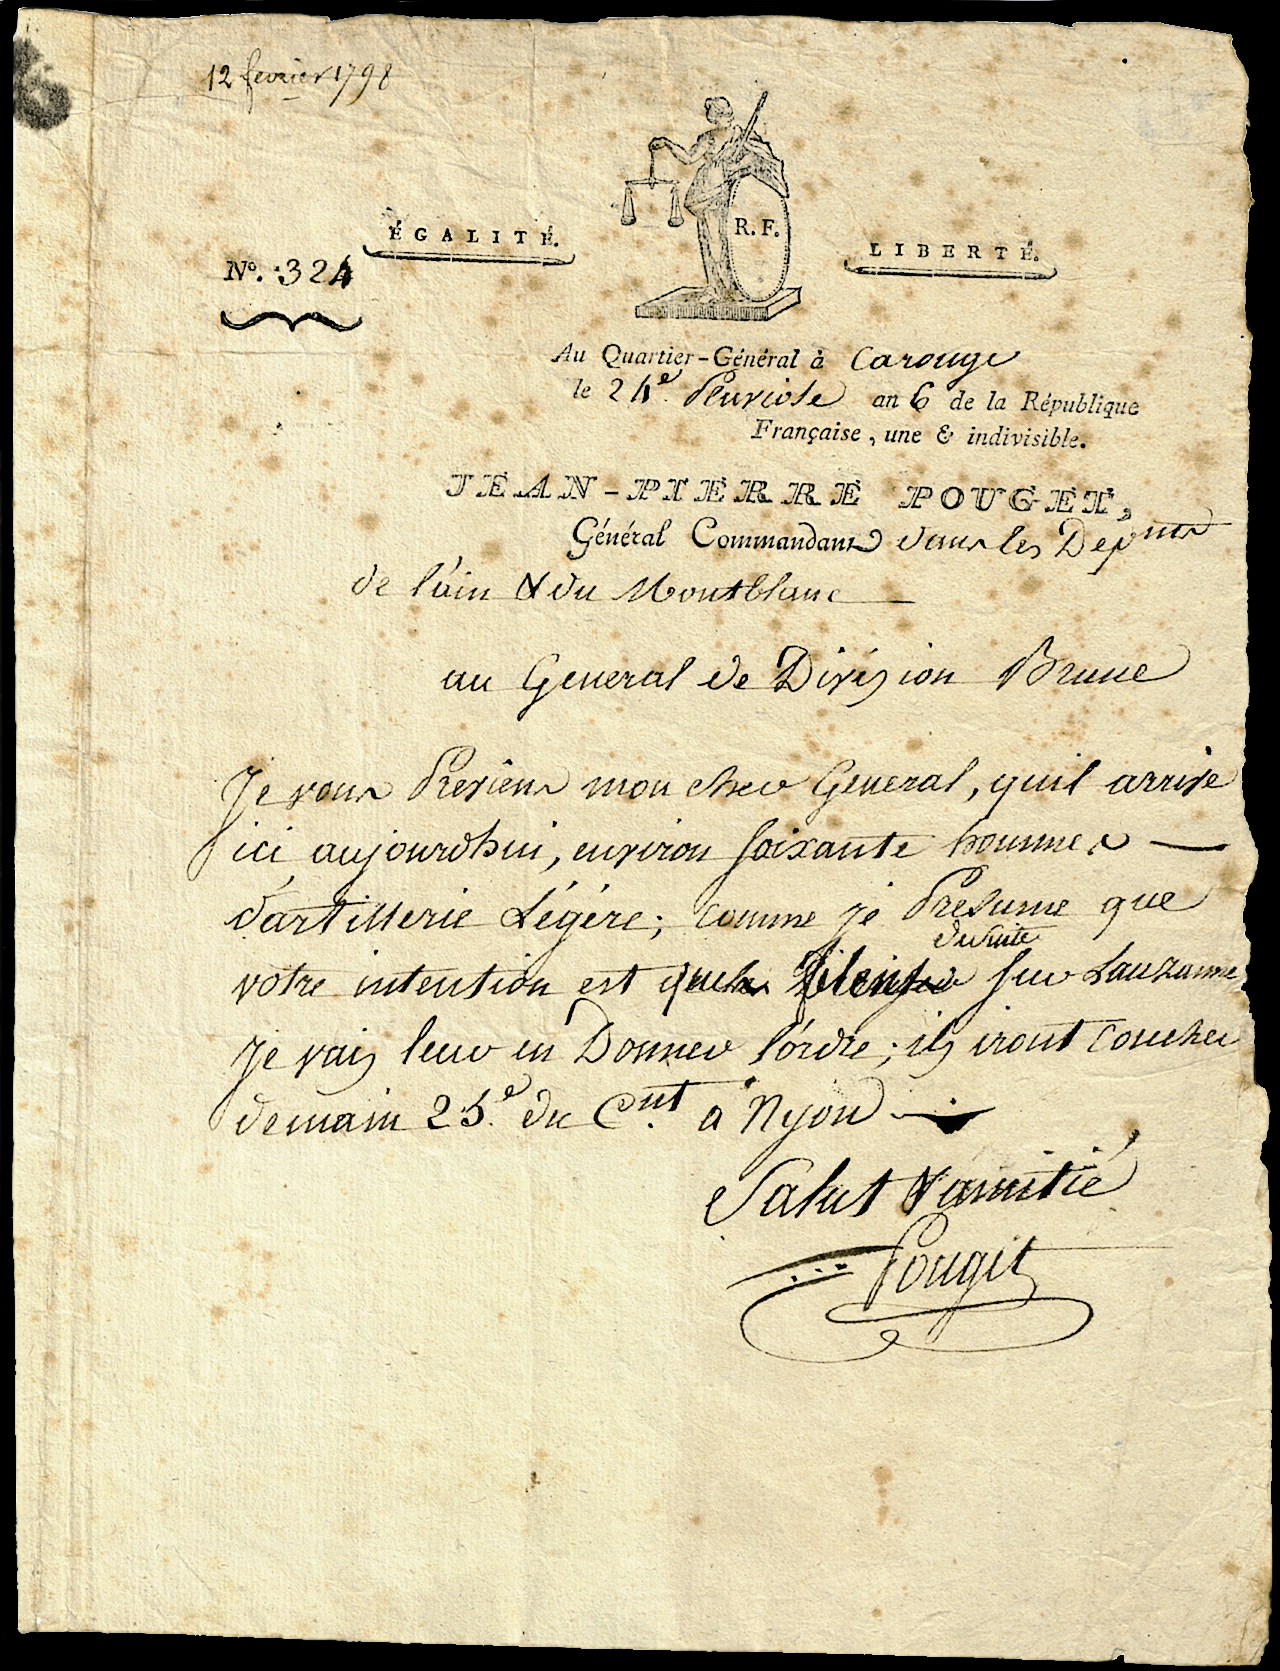 12 fevrier 1798
ÉGALITÉ.
R. F.
LIBERTÉ.
Nº. 324
Au Quartier-Général à Carouge
le 24e. Pluviose an 6 de la République
Française, une & indivisible.
JEAN-PIERRE POUGET,
Général Commandant dans les Depmts
de l'ain & du Montblanc
au General de Division Brune
Je vous Previens mon cher General, quil arrive
ici aujourdhui, environ soixante hommes
d'artillerie Légére; comme je Presume que
de suite
votre intention est quils filent sur Lauzanne
je vais leur en Donner l'ordre; ils iront coucher
demain 25e. du Cnt. à Nyon
Salut & amitié
Pouget